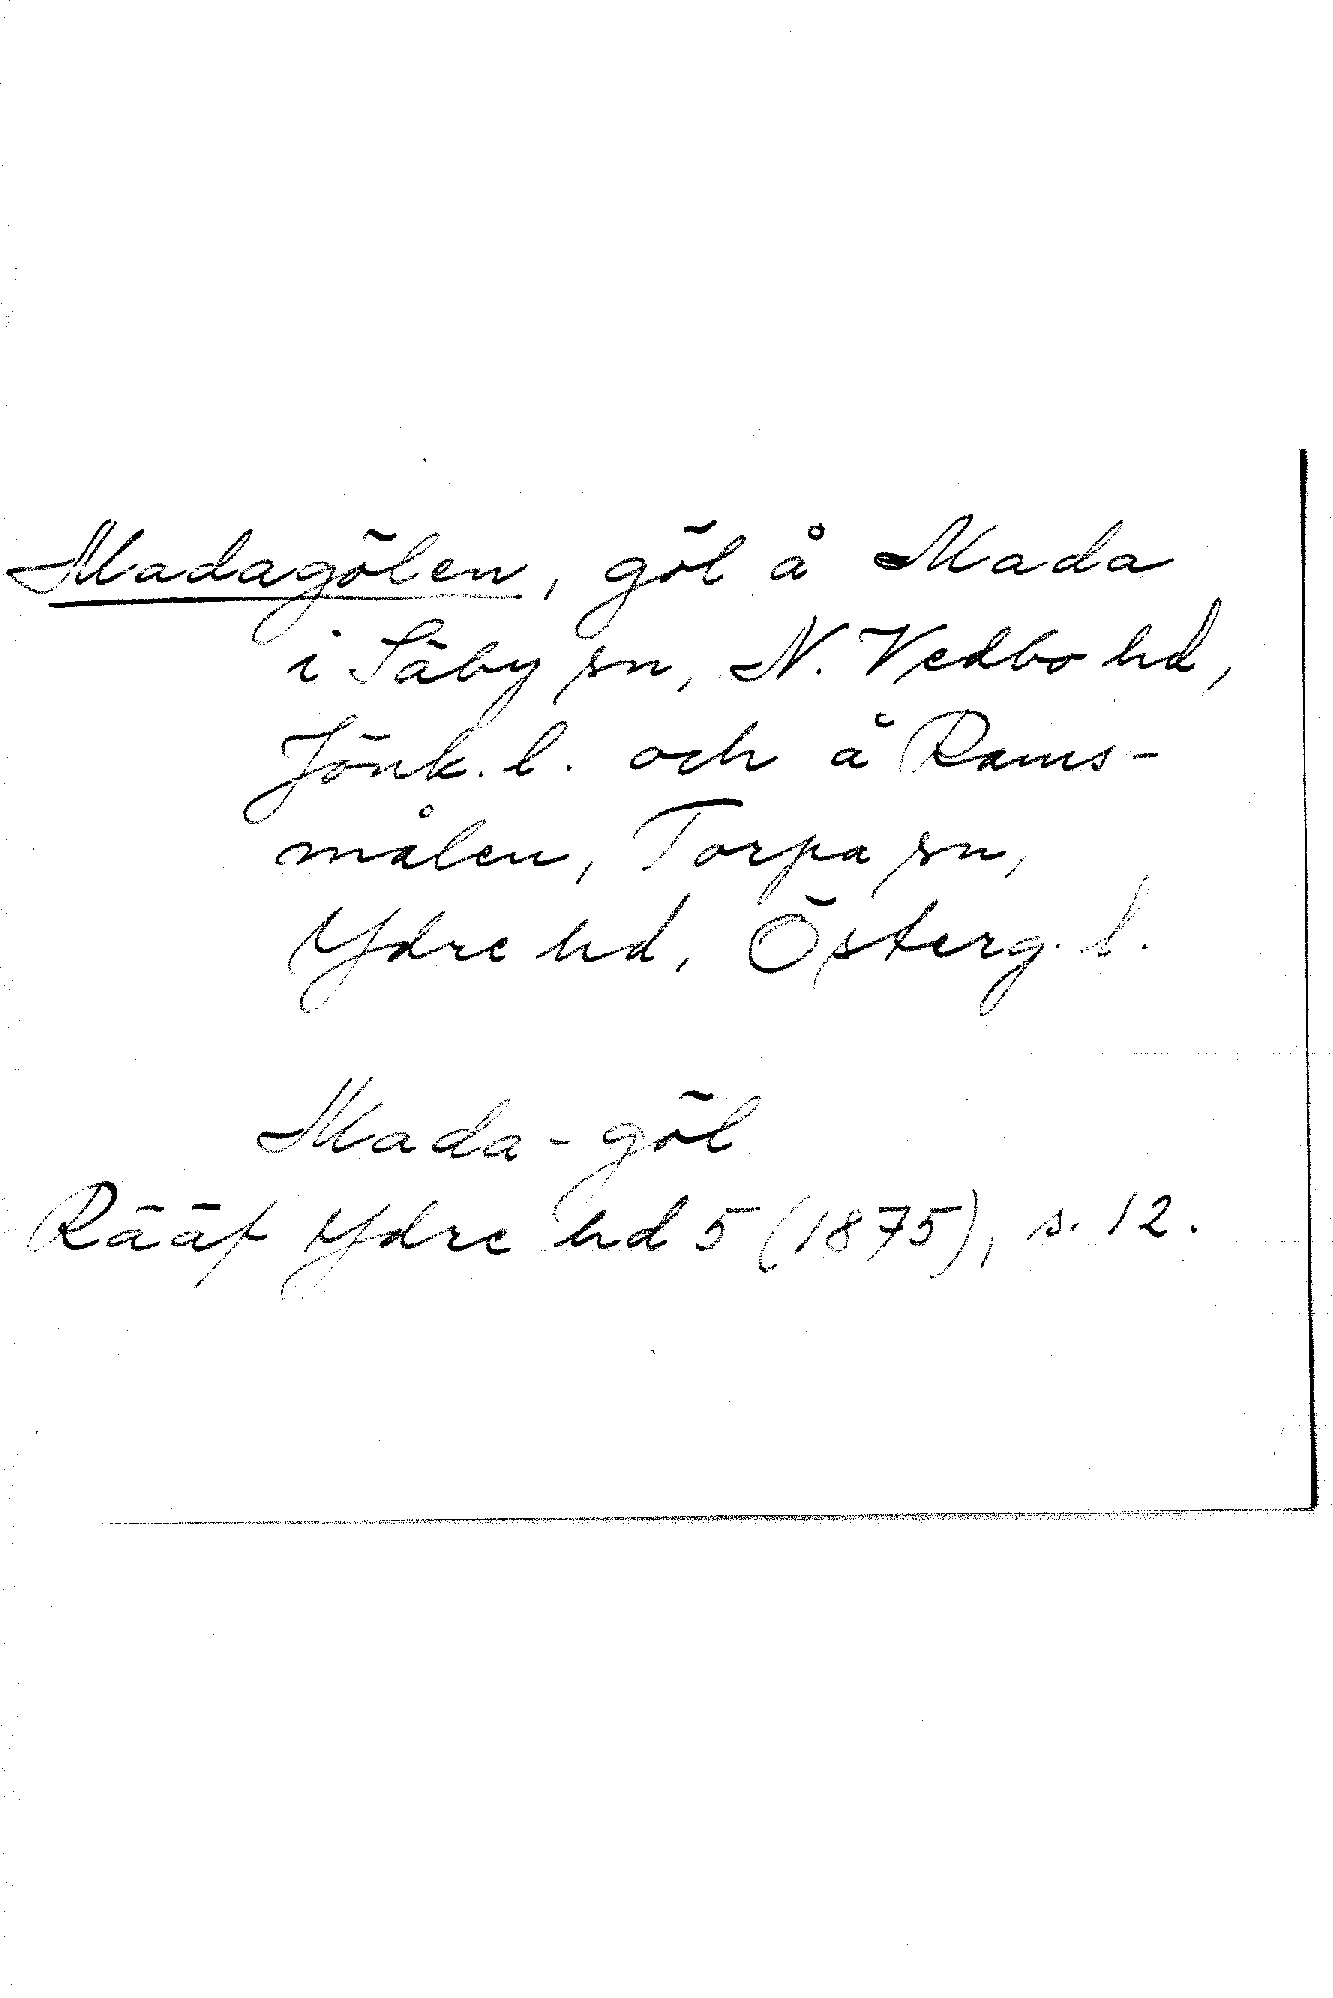 Madagölen, göl å Mada
i Säby sn, N. Vedbo hd,
Jönk. l. och å Rams-
målen, Torpa sn,
Ydre hd, Österg. l.
Mada-göl
Rääf Ydre hd 5 (1875), s. 12.